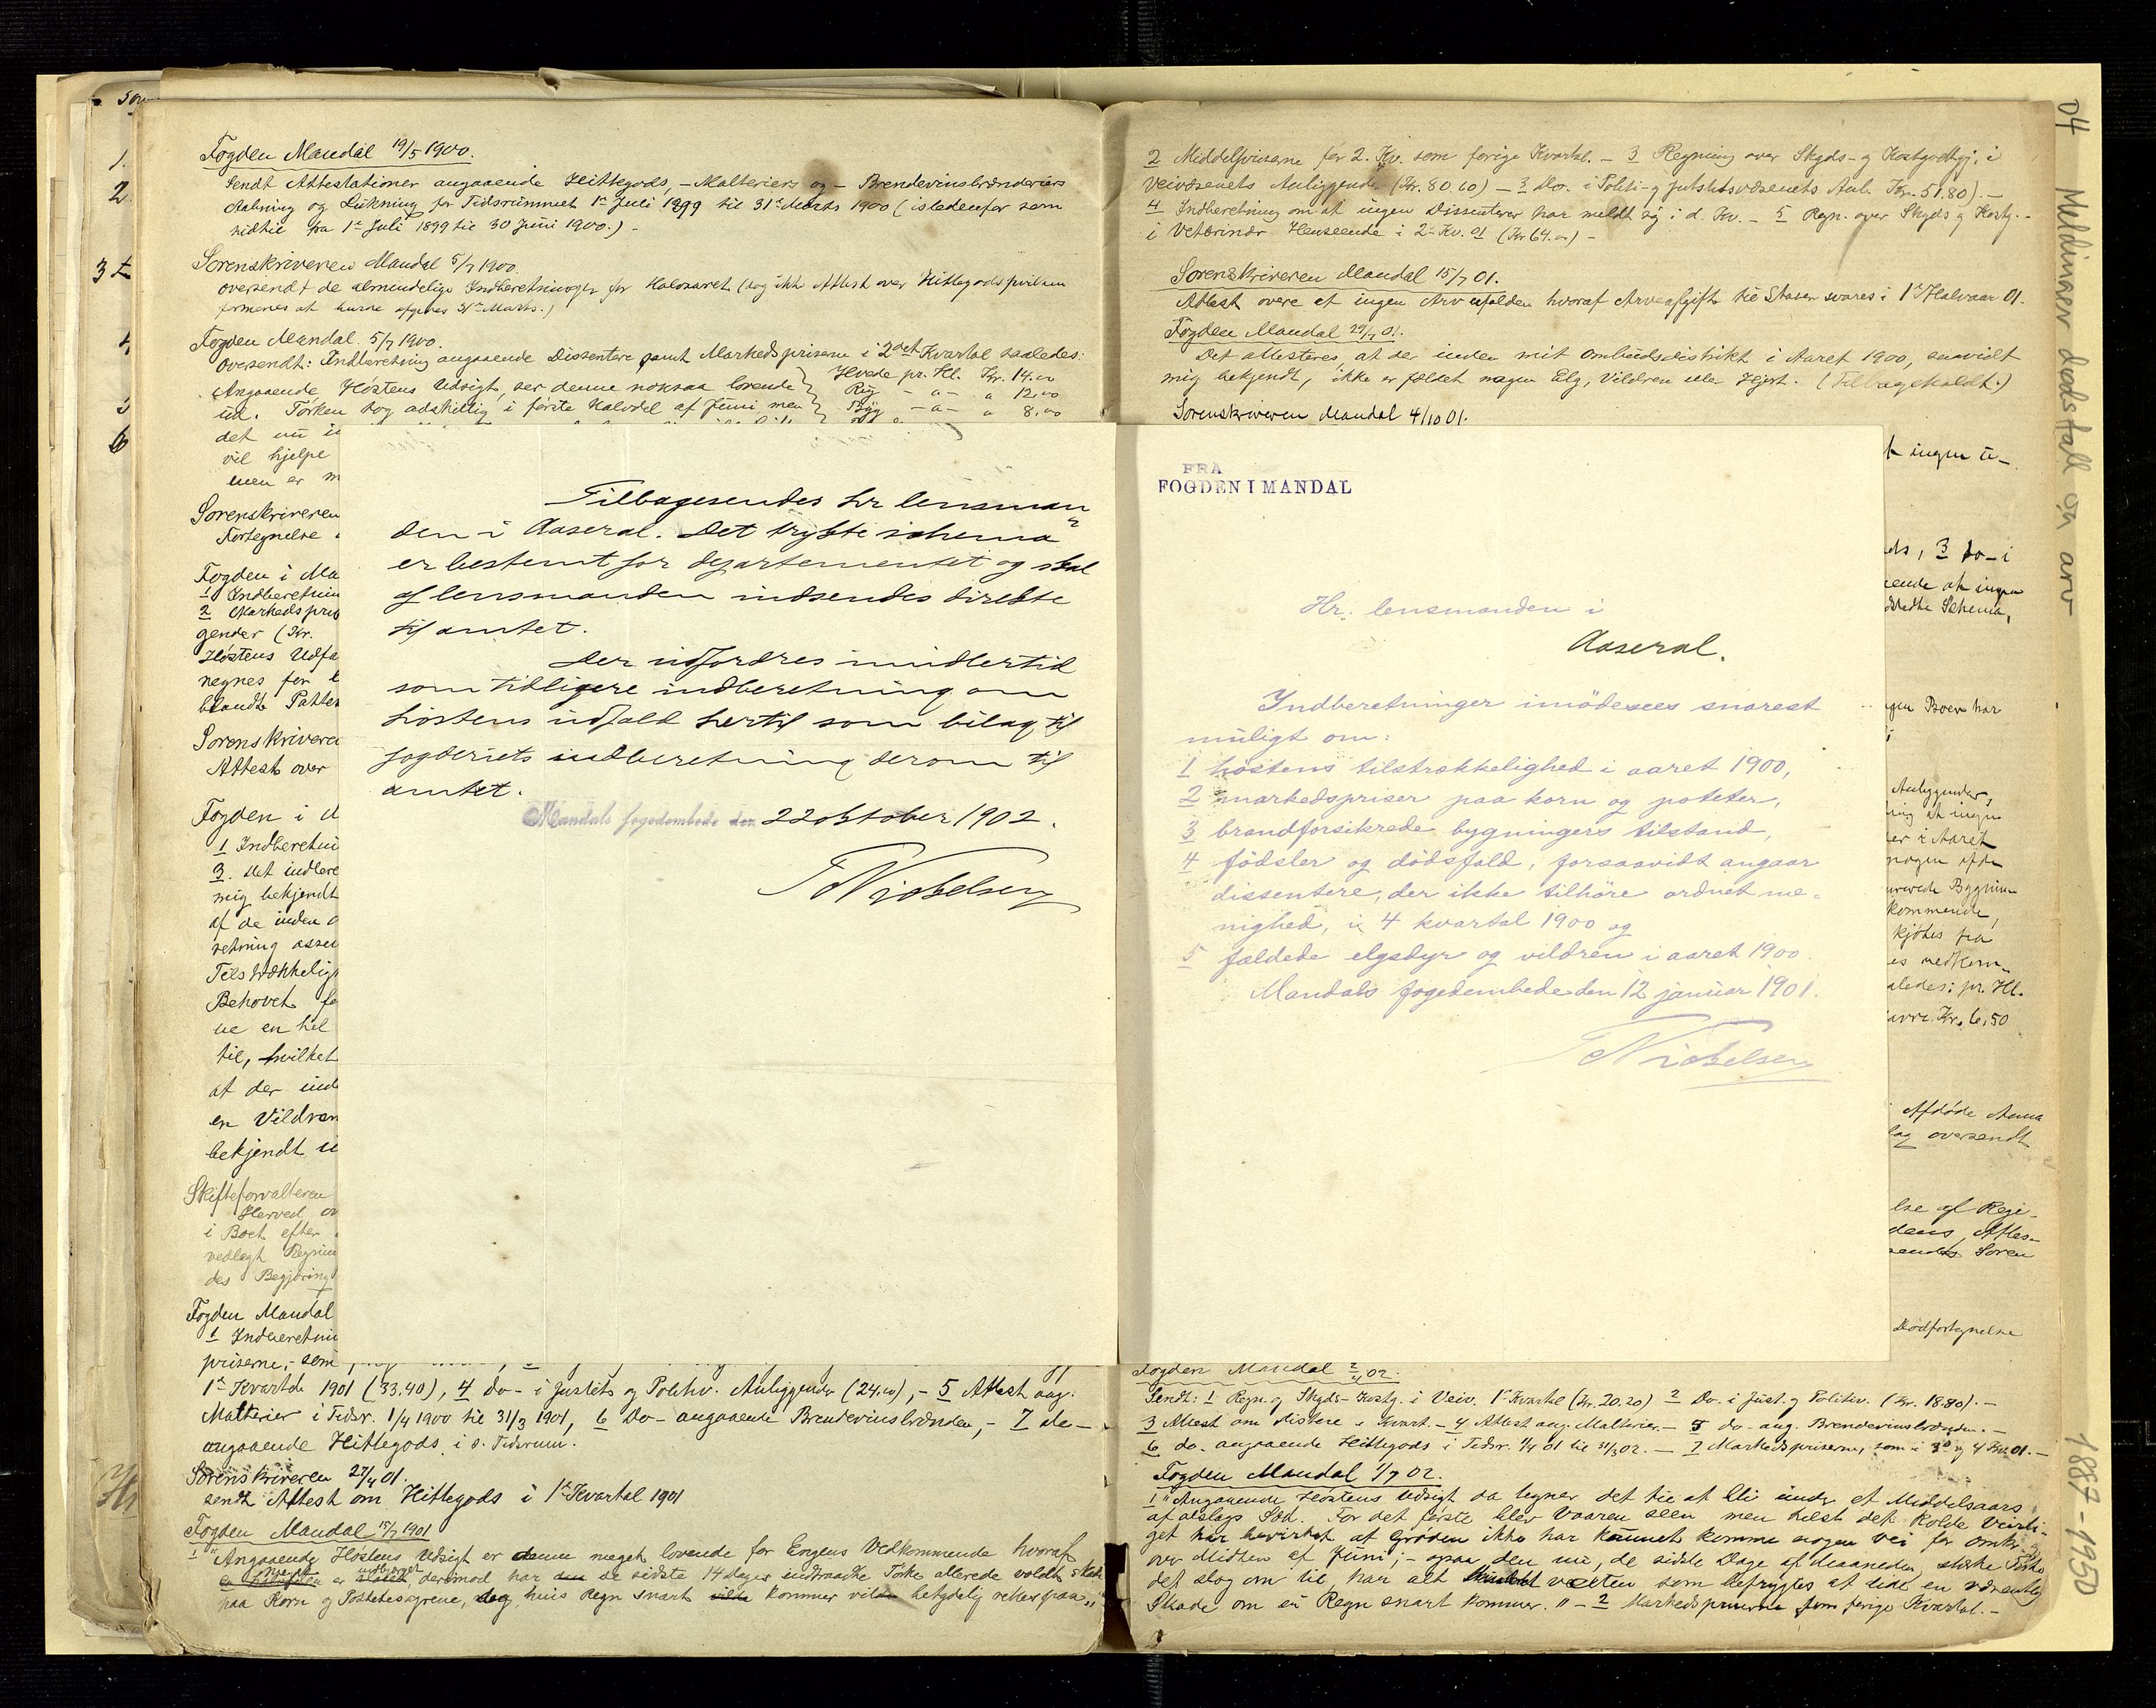 Fogden Mandal 19/5 1900.
Sendt Attestationer angaaende Hittegods, – Malteriers og – Brendevinsbrænderiers
Aabning og Lukning for Tidsrummet 1ste Juli 1899 til 31te Marts 1900 (istedenfor som
hidtil fra 1ste Juli 1899 til 30 Juni 1900.) –
Sorenskriveren Mandal 5/7 1900.
oversendt de almindelige Indberetninger for Halvaaret (dog ikke Attest over Hittegods
formenes at kunne afgives 31te Marts.)
Fogden Mandal. 5/7 1900.
oversendt: Indberetning angaaende Dissentere samt Markedspriserne i 2det Kvartal saaledes:
Angaaende Høstens Udsigt, ser denne noksaa lovende Hvede pr. Hl. Kr. 14.00
ud. Tørken tog adskillig i første Halvdel af Juni men Rug " – " 12,00
Byg – " – " 8,00
det nu i
vil hjelpe
men er m
Sorenskriveren
Fortegnelse
Fogden i Ma
1 Indberetnin
2 Markedspris
gender (Kr.
Høstens Udfa
regnes for
blandt
Sorenskrivere
Attest over
Fogden i
1 Indberetni
3. det indbere
mig bekjendt
af de inden
retning
Tilstrækkelig
Behovet fo
ne en hel
til, hvilket
at der ind
en Vildren
bekjendt
Skifteforvalteren
Herved ov
i Boet efter
vedlagt Regnin
des Begjæring
Fogden Mandal
1 Indberetnin
priserne, – som
1ste Kvartal 1901 (33.40), 4 do – i Justits og Politiv. Anliggender (24.00), – 5 Attest ang.
Malterier i Tidsr. 1/4 1900 til 31/3 1901, 6 Do – angaaende Brendevinsbrænden, – 7 de –
angaaende Hittegods i s. Tidsrum.
Sorenskriveren 27/4 01.
sendt Attest om Hittegods i 1ste Kvartal 1901
Fogden Mandal 15/7 1901
1 "Angaaende Høstens Udsigt er denne meget lovende for Engens Vedkommende hvoraf
er, derimod har de sidste 14 dages indtraadte Tørke allerede voldt Skade
paa Korn og Potetesagrene, dog, hvis Regn snart kommer vil betydelig rettes paa."
Tilbagesendes hr lensman
den i Aaseral. Det trykte schema
er bestemt for departementet og skal
af lensmanden indsendes direkte
til amtet.
Der udfordres imidlertid
som tidligere indberetning om
høstens udfald hertil som bilag til
fogderiets indberetning derom til
amtet.
Mandals fogedembede den 22 oktober 1902.
TNickelsen
2 Middelpriserne for 2. Kv. som forige Kvartal. – 3 Regning over Skyds- og Kostgodtgj. i
Veivæsenets Anliggender (Kr. 80.60) – 3 Do. i Politi- og Justitsvæsenets Anl. Kr. 51.80) –
4 Indberetning om at ingen Dissentere har meldt sig i d. Kv. – 5 Regn. over Skyds og Kostg. –
i Veterinær Henseende i 2det Kv. 01 (Kr 64.00) –
Sorenskriveren Mandal 15/7 01.
Attest over at ingen Arv er falden hvoraf Arveafgift til Staten svares i 1ste Halvaar 01.
Fogden Mandal 29/7 01.
Det attesteres, at der inden mit Ombudsdistrikt i Aaret 1900, saavidt
mig bekjendt, ikke er fældet nogen Elg, Vildren eller Hjort. (Tilbagekaldt.)
Sorenskriveren Mandal 4/10 01.
FRA
FOGDEN I MANDAL
Hr. lensmanden i
Aaseral.
Indberetninger imödesees snarest
muligt om:
1 høstens tilstrækkelighed i aaret 1900,
2 markedspriser paa korn og poteter,
3 brandforsikrede bygningers tilstand,
4 födsler og dödsfald, forsaavidt angaar
dissentere, der ikke tilhöre ordnet me=
nighed, i 4 kvartal 1900 og
5 fældede elgsdyr og vildren i aaret 1900.
Mandals fogedembede den 12 januar 1901.
TNickelsen
ingen
ds, 3 Do – i
eende at ingen
Schema,
gen Boer har
Anliggender,
ning at ingen
er i Aaret
nogen
Bygnin
kommende,
kjøbes fra
es vedkom-
aledes: pr. Hl.
Kr. 6,50
Afdøde Anna
lag oversendt
lse af
dens, Attes-
sendt Soren
Dødfortegnelse
Fogden Mandal 2/4 02.
Sendt: 1 Regn. og Skyds- Kostg. i Veiv. 1ste Kvartal (Kr. 20.20) 2 Do. i Just. og Politiv. (Kr. 18.80). –
3 Attest om Distere Kvart. – 4 Attest ang. Malterier. – 5 do – ang. Brendevinsbrænden. –
6 do – angaaende Hittegods i Tidsr. 1/4 01 til 31/3 02. – 7 Markedspriserne, som i 3die og 4 Kv. 01. –
Fogden Mandal 1/7 02.
1 "Angaaende Høstens Udsigt da tegner det til at bli under et Middelsaars
af alslags Sæd. For det første blev Vaaren seen men helst det kolde Veirli-
get har bevirket at Grøden ikke har kunnet komme nogen Vei før omkr.
over Midten af Juni; – og paa den nu, de sidste Dage af Maaneden, stærke Tørke
det slog om til, har alt vælten, som befrygtes at lide en væsentlig
Skade om ei Regn snart kommer." – 2 Markedspriserne som forige Kvartal. –
04 Meldinger dødsfall og arv
1887 – 1950